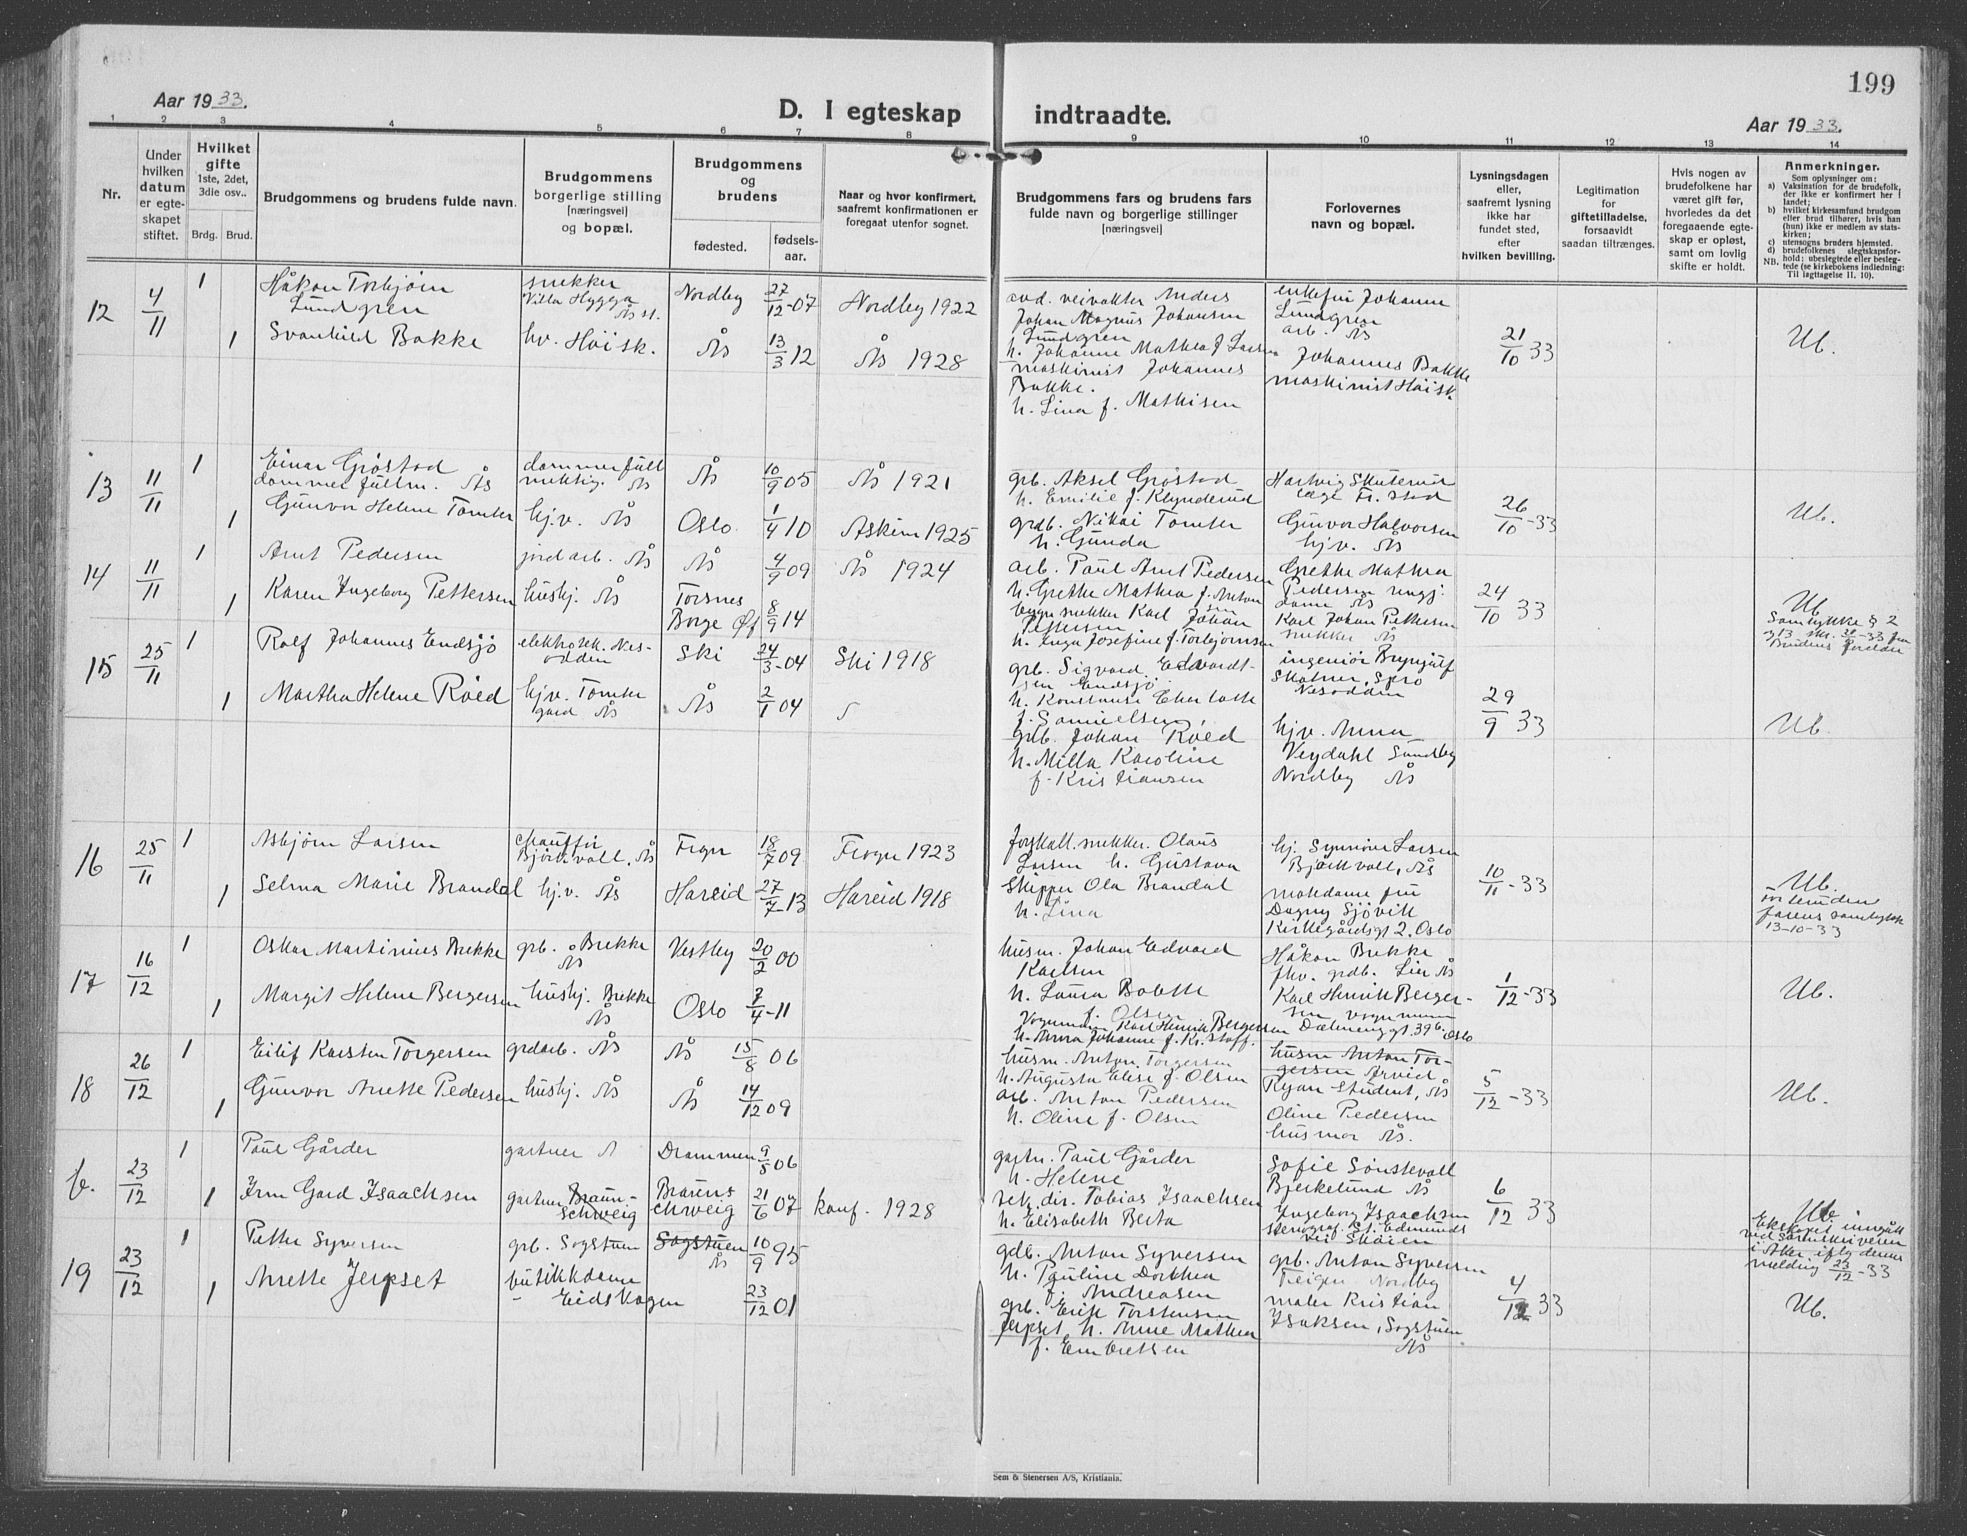 199
Aar 1933.
D. I egteskap indtraadte.
Aar 1933.
1 2 3 4 5 6 7 8 9 10 11 12 13 14
Nr.
Under hvilken datum er egteskapet stiftet.
Hvilket gifte 1ste, 2det, 3die osv..
Brdg. Brud.
Brudgommens og brudens fulde navn.
Brudgommens borgerlige stilling [næringsvei] og bopæl.
Brudgommens og brudens
fødested. fødselsaar.
Naar og hvor konfirmert, saafremt konfirmationen er foregaat utenfor sognet.
Brudgommens fars og brudens fars fulde navn og borgerlige stillinger [næringsvei]
Forlovernes navn og bopæl.
Lysningsdagen eller, saafremt lysning ikke har fundet sted, efter hvilken bevilling.
Legitimation for giftetilladelse, forsaavidt saadan tiltrænges.
Hvis nogen av brudefolkene har været gift før, hvorledes da det foregaaende egteskap er opløst, samt om lovlig skifte er holdt.
Anmerkninger.
Som oplysninger om:
a) Vaksination for de brudefolk, der ikke er konfirmert her i landet;
b) hvilket kirkesamfund brudgom eller brud tilhører, hvis han (hun) ikke er medlem av statskirken;
c) utensogns bruders hjemsted.
d) brudefolkenes slegtskapsforhold: ubeslegtede eller beslegtede (se kirkebokens indledning:
NB. Til iagttagelse II, 10).
12 4/11 1 Håkon Torbjørn Lundgren
snekker Villa Hygga Ås st.
Nordby 27/12-07 Nordby 1922
avd. veivokter Anders Johan Magnus Johansen Lundgren
h. Johanne Mathea f. Larsen
enkefru Johanne Lundgren arb. Ås
21/10 33 Ub.
1 Svanhild Bakke hv. Høisk. Ås 13/3 12 Ås 1928
maskinist Johannes Bakke.
h. Lina f. Mathisen
Johannes Bakke maskinist Høisk.
13 11/11 1 Einar Grøstad dommerfullm. Ås
dommerfullmektig. Ås
Ås 10/9 05 Ås 1921
grb. Aksel Grøstad
h. Emilie f. Klynderud
Hartvig Skuterud læge Fr.stad
26/10-33 Ub.
1 Gunvor Helene Tomter hj.v. Ås Oslo. 1/4 10 Askim 1925
grdb. Nikai Tomter
h. Gunda
Gunvor Halvorsen hjv. Ås
14 11/11 1 Arnt Pedersen jordarb. Ås Ås 4/9 09 Ås 1924
arb. Paul Arnt Pedersen
h. Grethe Mathea f. Antonsen
Grethe Mathea Pedersen rengj. dame Ås
24/10 33
Ub
Samtykke § 2
1 Karen Ingeborg Pettersen hushj. Ås Torsnes Borge Øf 8/9 14
bygn.snekker Karl Johan Pettersen
h. Inga Josefine f. Torbjørnsen
Karl Johan Pettersen snekker Ås
15 25/11 1 Rolf Johannes Endsjø elektrotek. Nesodden
Ski 24/3-04 Ski 1918
grb. Sigvard Edvardtsen Endsjø
h. Konstanse Charlotte f. Samuelsen
ingeniør Brynjulf Skatner, Spro Nesodden
29/9 33 Ub.
1 Martha Helene Røed hjv. Tomter gård Ås Ås 2/1 04
grb. Johan Røed
h. Milla Karoline f. Kristiansen
hjv. Anna Veydahl Sundby Nordby Ås
16 25/11 1 Asbjørn Larsen chauffør Bjørkvoll, Ås
Frogn 18/7 09 Frogn 1923
forskall.snekker. Olaus Larsen h. Gustava
hj. Synnøve Larsen Bjørkvoll, Ås
10/11-33 Ub.
13-10-33
1 Selma Marie Brandal hj.v. Ås Hareid 27/7-13 Hareid 1918
Skipper Ola Brandal
h. Lina
matdame fru Dagny Sjøvik Kirkegårdsgt 2. Oslo
17 16/12 1 Oskar Martinius Brekke grb. Brekke Ås Vestby 20/2 00
husm. Johan Edvard Karlsen
h. Laura Bolette f. Olsen
Håkon Brekke fhv. grdb. Lier Ås
1/12-33 Ub.
1 Margit Helene Bergersen hushj. Brekke Ås Oslo 7/4-11
Vognmann Karl Henrik Bergersen
h. Anna Johanne f. Kristoff.
Karl Henrik Bergersen vognmann Dælenenggt. 39 b. Oslo
18 26/12 1 Eilif Karsten Torgersen grdarb. Ås Ås 15/8 06
husm. Anton Torgersen
h. Augusta Elise f. Olsen
husm Anton Torgersen Arvid Ryan student, Ås
5/12-33 Ub.
1 Gunvor Anette Pedersen hushj. Ås Ås 14/12 09
arb. Anton Pedersen
h. Oline f. Olsen
Oline Pedersen husmor Ås.
b. 23/12 1 Paul Gårder gartner Drammen 9/5 06
gartn. Paul Gårder
h. Helene
Sofie Sønstevoll Bjerkelund Ås
6/12 33
Ub
Ekskapet inngått ved sorenskriveren i Aker iflg denne melding 23/12-33
1 Irm Gard Isaachsen gartner Braunschweig
Braunschweig 21/6 07 konf. 1928
dir. Tobias Isaachsen
h. Elisabeth Berta
Ingeborg Isaachsen stenograf. St. Edmunds vei Skøien
19 23/12 1 Petter Syversen grb. Sogstuen Sogstuen Ås 10/9 95
gdb. Anton Syversen
h. Pauline Dorthea f. Andreasen
grb. Anton Syversen Teigen Nordby
4/12 33 Ub.
1 Anette Jerpset butikkdame Eidskogen 23/12 01
grb. Erik Torstensen Jerpset h. Anne Mathea f. Embretsen
maler Kristian Isaksen, Sogstuen Ås
Sem & Stenersen A/S, Kristiania.